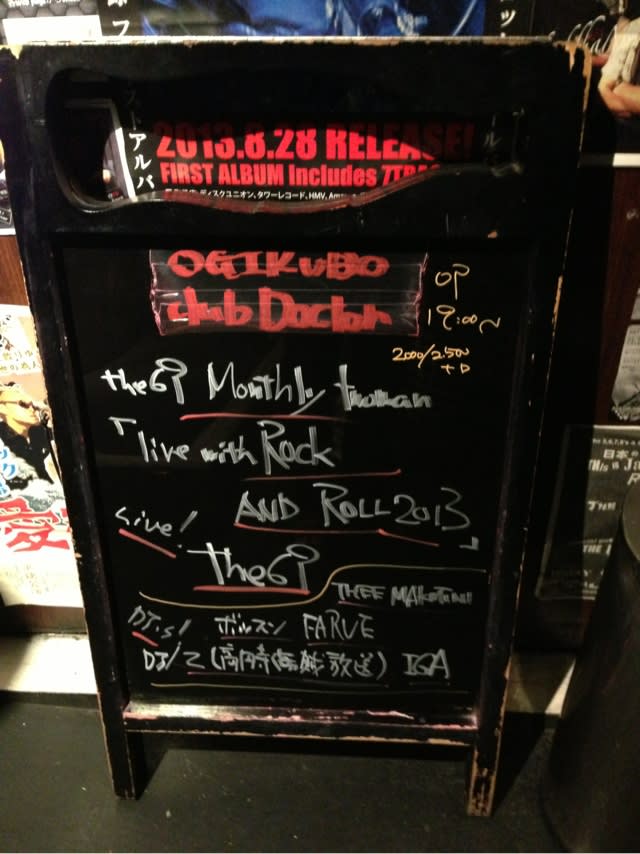 2013.8.28 RELEASE!
FIRST ALBUM Includes 7TR
ディスクユニオン、タワーレコード、HMV、Am
OGIKUBO
club Doctor
OP
19:00~
2000/2500
+D
the69 Monthly
「live with Rock
AND ROLL 2013」
Live!
The69
THEE MAKOTENI
DJ's! ボルスン FARVE
DJ/Z ( 放送) IGA
アルバ
日本の